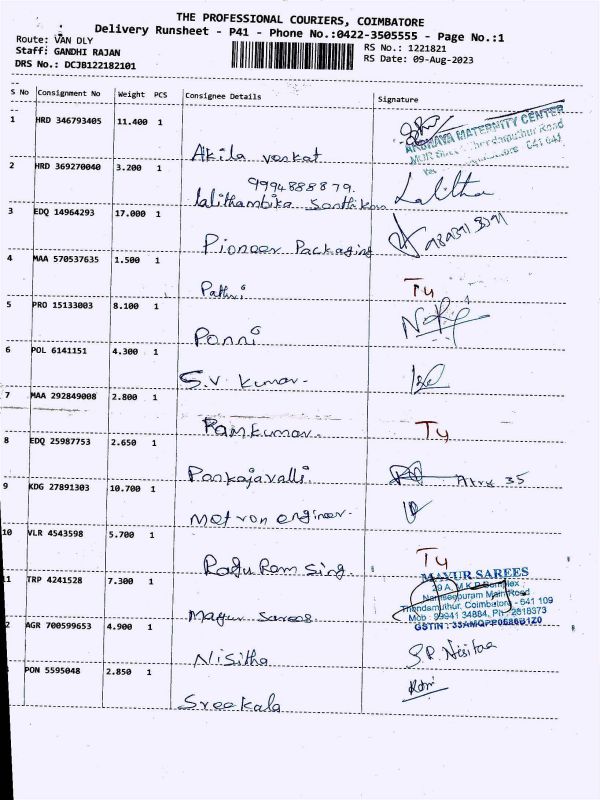 THE PROFESSIONAL COURIERS, COIMBATORE
Delivery Runsheet - P41 - Phone No.:0422-3505555 - Page No.:1
Route: VAN DLY
RS No.: 1221821
Staff: GANDHI RAJAN
RS Date: 09-Aug-2023
DRS No.: DCJB122182101
S No Consignment No Weight PCS Consignee Details Signature
1 HRD 346793405 11.400 1
AKSHAYA MATERNITY CENTER
Akila venkat
2 HRD 369270040 3.200 1
9994888879.
lalithambika Senthil Lalitha
3 EDQ 14964293 17.000 1
Pioneer Packaging
4 MAA 570537635 1.500 1
Pathri Ty
5 PRO 15133003 8.100 1
Ponni
6 POL 6141151 4.300 1
S.V. Kumar.
7 MAA 292849008 2.800 1
Ramkumar. Ty
8 EDQ 25987753 2.650 1
Pankajavalli. 35
9 KDG 27891303 10.700 1
metron engineer.
10 VLR 4543598 5.700 1
Ragu Ram Sing. Ty
MAYUR SAREES
11 TRP 4241528 7.300 1
29 A, M.K.P. Complex
Narseepuram Main Road
Thondamuthur, Coimbatore - 641 109
Mayur Sarees
2 AGR 700599653 4.900 1
Nisitha
PON 5595048 2.850 1
Sreekala